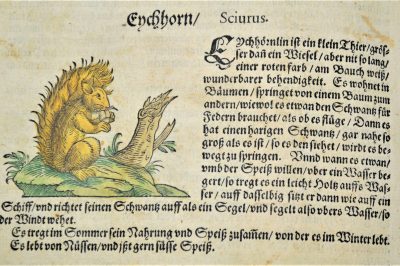 Eychhorn/ Sciurus.
EYchhörnlin ist ein klein Thier/grös-
ser dañ ein Wiesel/aber nit so lang/
einer roten farb/ am Bauch weiß/
wunderbarer behendigkeit. Es wohnet in
Bäumen/springet von einem Baum zum
andern/wiewol es etwan den Schwantz für
Federn brauchet/als ob es flüge/ Dann es
hat einen harigen Schwantz/gar nahe so
groß als es ist/so es den stehet/wirdt es be-
wegt zu springen. Vnnd wann es etwan/
vmb der Speiß willen/ vber ein Wasser be-
gert/so tregt es ein leicht Holtz auffs Was-
ser/ auff dasselbig sitzt er dann wie auff ein
Schiff/vnd richtet seinen Schwantz auff als ein Segel/vnd segelt also vbers Wasser/so
der Windt wehet.
Es tregt im Sommer sein Nahrung vnd Speiß zusam̃en/von der es im Winter lebt.
Es lebt von Nüssen/vnd jßt gern süsse Speiß.